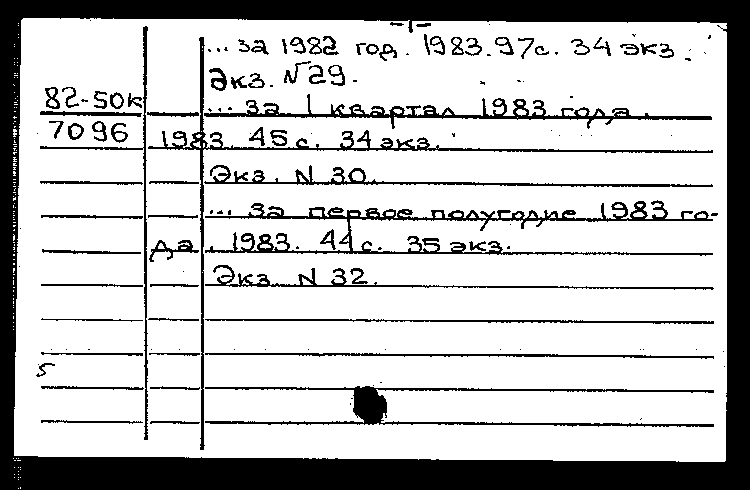 -1-
... за 1982 год. 1983. 97с. 34 экз.
Экз. N 29.
82-50к ... за I квартал 1983 года.
7096 1983. 45 с. 34 экз.
Экз. N 30.
... за первое полугодие 1983 го-
да. 1983. 44 с. 35 экз.
Экз. N 32.
5